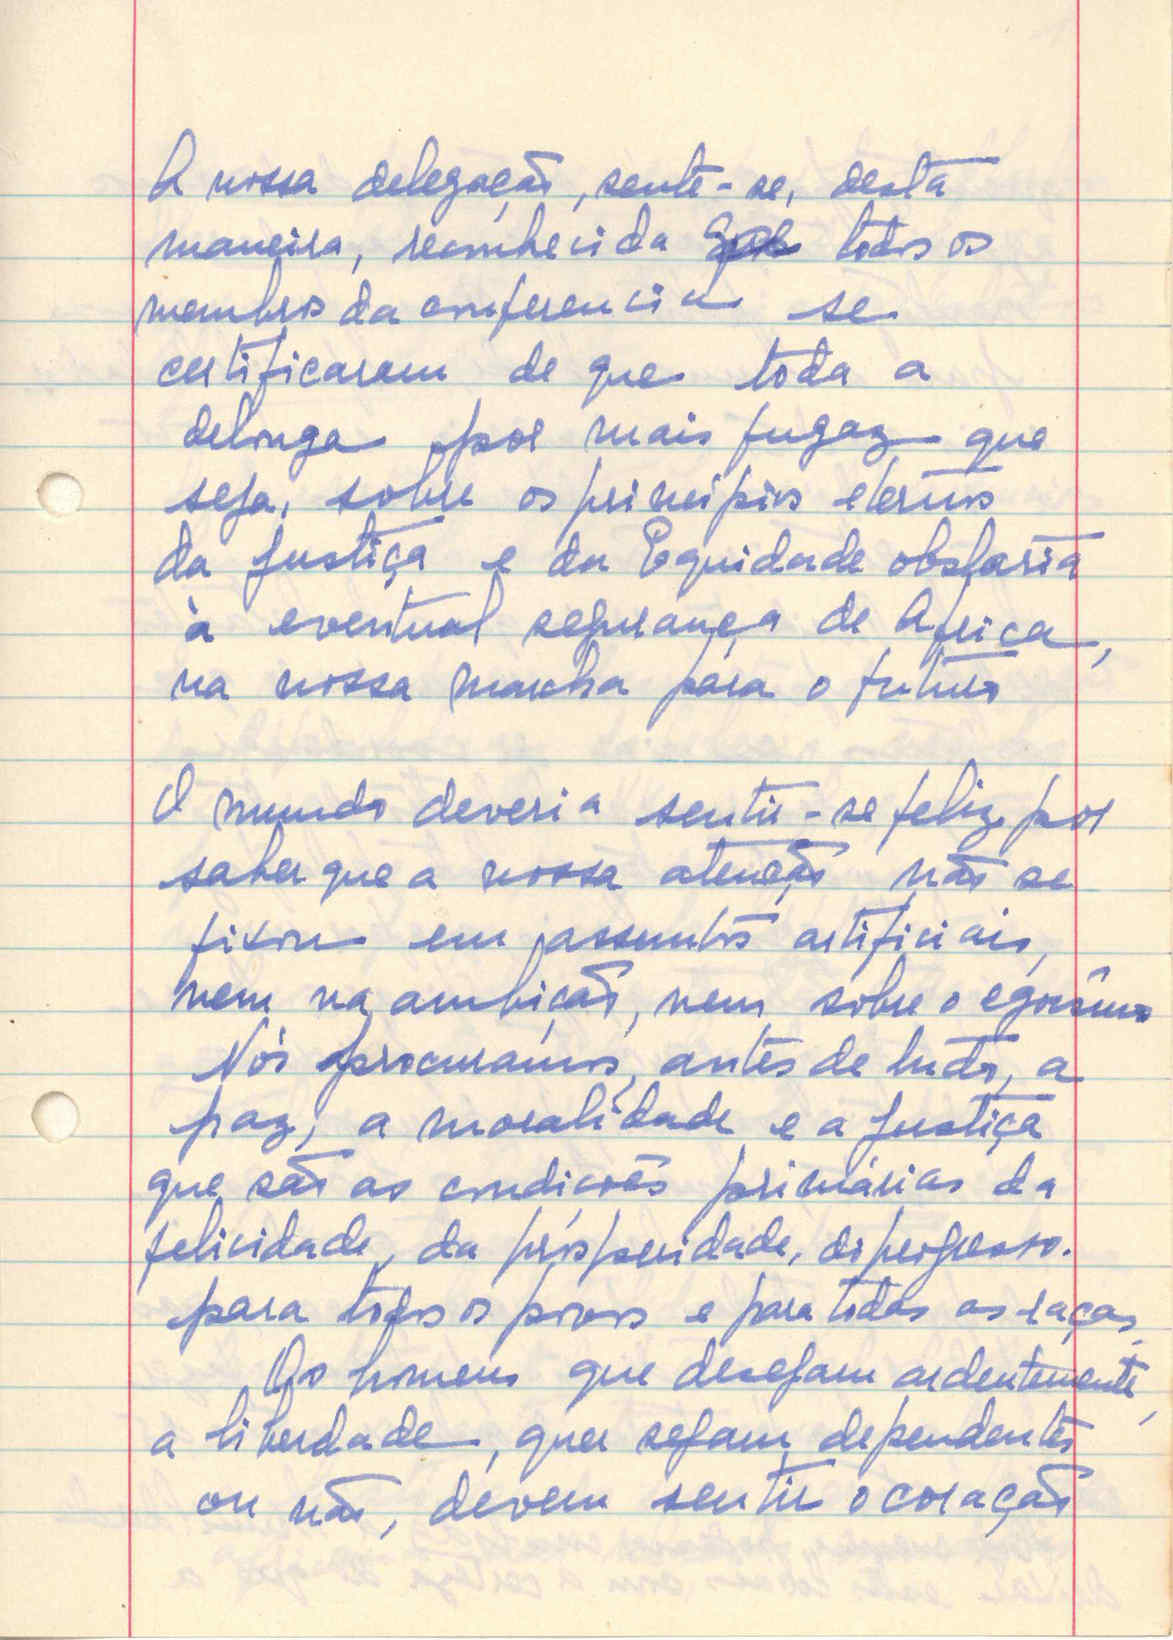 A nossa delegação, sente-se, desta
maneira, reconhecida todos os
membros da conferencia se
certificaram de que toda a
delonga por mais fugaz que
seja, sobre os principios eternos
da Justiça e da Equidade obstaria
à eventual segurança de Africa,
na nossa marcha para o futuro
O mundo deveria sentir-se feliz por
saber que a nossa atenção não se
fixou em assuntos artificiais,
nem na ambição, nem sobre o egoismo
Nós procurámos, antes de tudo, a
paz, a moralidade e a Justiça
que são as condicões primárias da
felicidade, da prosperidade, do progresso.
para todos os povos e para todas as raças.
Os homens que desejam ardentemente,
a liberdade, quer sejam dependentes
ou não, devem sentir o coração